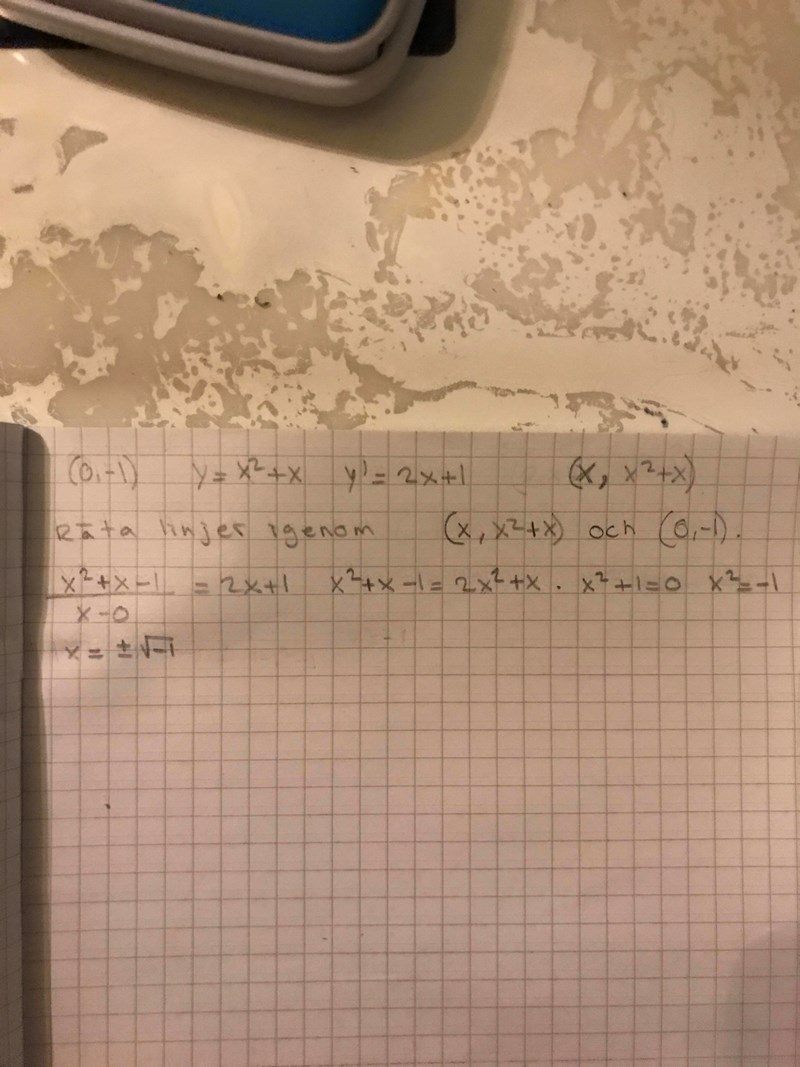 (0,-1) y = x²+x y' = 2x+1 (x, x²+x)
Räta linjer igenom (x, x²+x) och (0,-1).
x²+x-1 / x-0 = 2x+1 x²+x-1 = 2x²+x . x²+1=0 x²=-1
x = ±√-1